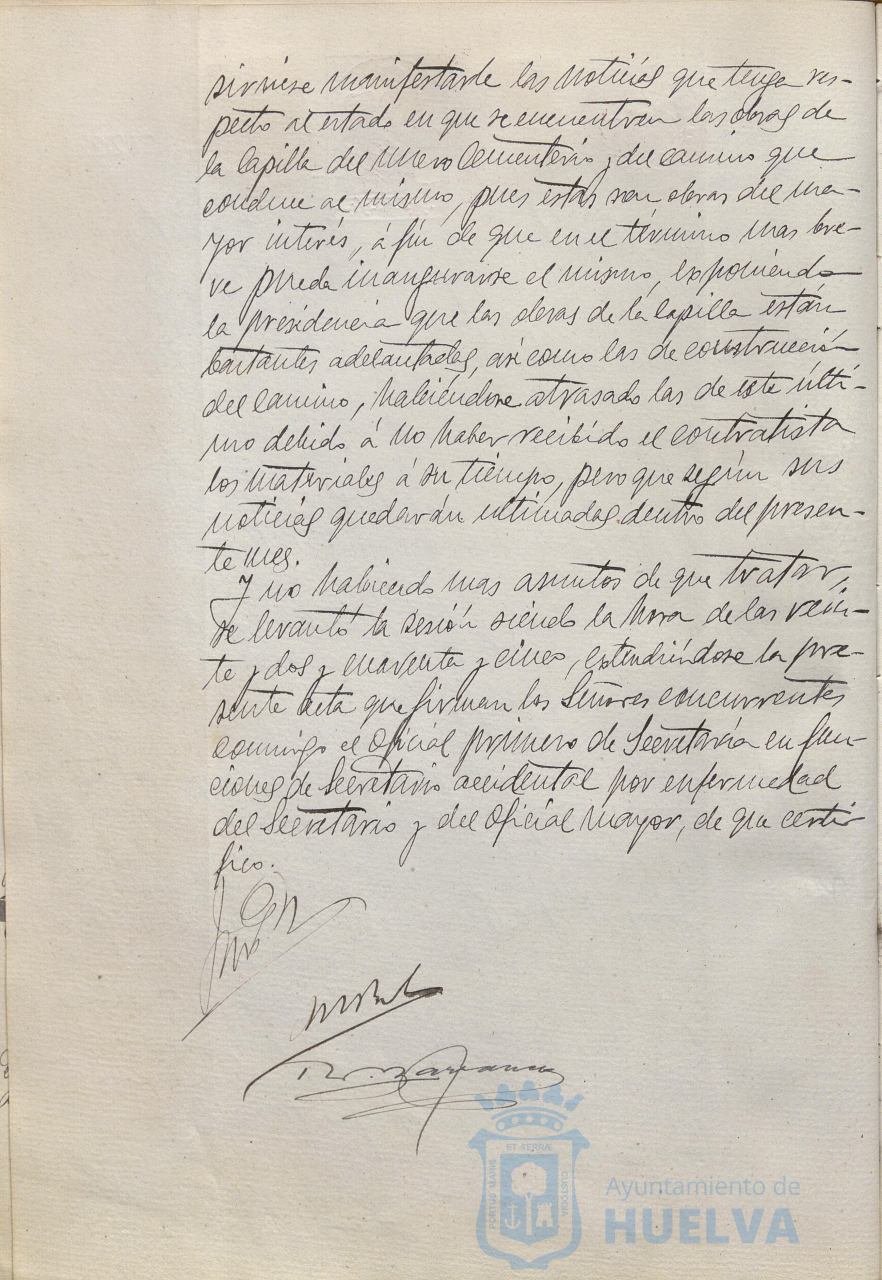 sirviese manifestarle las noticias que tenga res-
pecto al estado en que se encuentran las obras de
la Capilla del nuevo Cementerio y del camino que
conduce al mismo, pues estas son obras del ma-
yor interés, á fin de que en el término mas bre-
ve pueda inaugurarse el mismo, exponiendo
la presidencia que las obras de la capilla están
bastantes adelantadas, asi como las de construcción
del camino, habiéndose atrasado las de este últi-
mo debido á no haber recibido el contratista
los materiales á su tiempo, pero que según sus
noticias quedarán ultimadas dentro del presen-
te mes.
Y no habiendo mas asuntos de que tratar,
se levantó la sesión siendo la hora de las vein-
te y dos y cuarenta y cinco, extendiéndose la pre-
sente acta que firman los Señores concurrentes
conmigo el Oficial primero de Secretaría en fun-
ciones de Secretario accidental por enfermedad
del Secretario y del Oficial mayor, de que certi-
fico.
PORTUS MARIS
ET TERRÆ
CUSTODIA
Ayuntamiento de
HUELVA